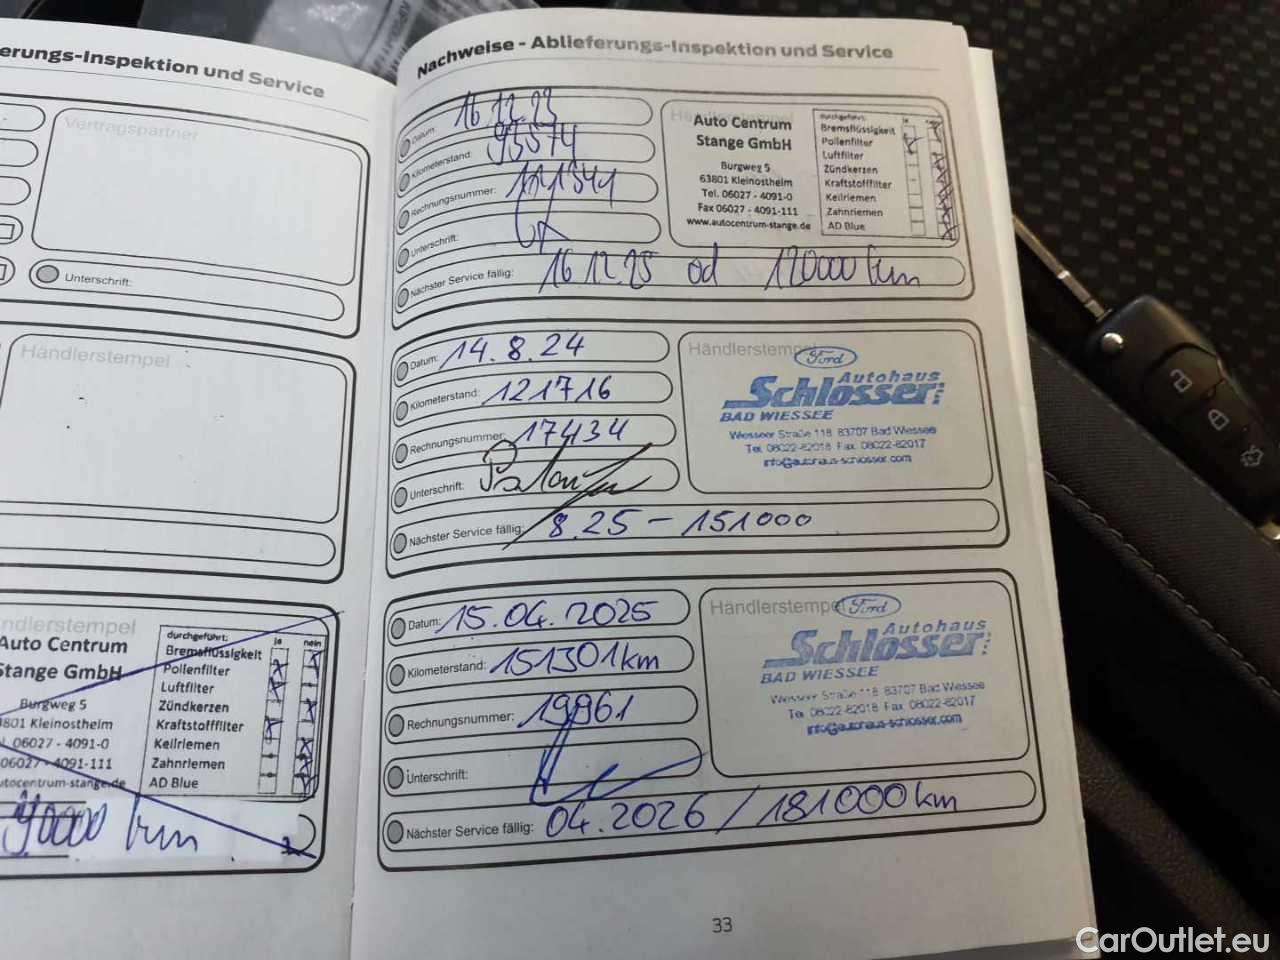 erungs-Inspektion und Service
Vertragspartner
Unterschrift:
Händlerstempel
ndlerstempel
Auto Centrum
Stange GmbH
Burgweg 5
3801 Kleinostheim
l. 06027 - 4091-0
06027 - 4091-111
utocentrum-stange.de
durchgeführt: ja nein
Bremsflüssigkeit
Pollenfilter
Luftfilter
Zündkerzen
Kraftstofffilter
Keilriemen
Zahnriemen
AD Blue
90000 km
Nachweise - Ablieferungs-Inspektion und Service
Datum: 16.12.23
Kilometerstand: 93574
Rechnungsnummer: 121341
Unterschrift:
Nächster Service fällig: 16.12.25 od 120000 km
Händlerstempel
Auto Centrum
Stange GmbH
Burgweg 5
63801 Kleinostheim
Tel. 06027 - 4091-0
Fax 06027 - 4091-111
www.autocentrum-stange.de
durchgeführt: ja nein
Bremsflüssigkeit
Pollenfilter
Luftfilter
Zündkerzen
Kraftstofffilter
Keilriemen
Zahnriemen
AD Blue
Datum: 14.8.24
Kilometerstand: 121716
Rechnungsnummer: 17434
Unterschrift:
Nächster Service fällig: 8.25 - 151000
Händlerstempel
Ford
Autohaus
Schlosser
BAD WIESSEE
Wiesseer Straße 118 83707 Bad Wiessee
Tel. 08022-82018 Fax 08022-82017
info@autohaus-schlosser.com
Datum: 15.04.2025
Kilometerstand: 151301km
Rechnungsnummer: 19861
Unterschrift:
Nächster Service fällig: 04.2026 / 181000km
Händlerstempel
Ford
Autohaus
Schlosser
BAD WIESSEE
Wiesseer Straße 118 83707 Bad Wiessee
Tel. 08022-82018 Fax 08022-82017
info@autohaus-schlosser.com
33
CarOutlet.eu